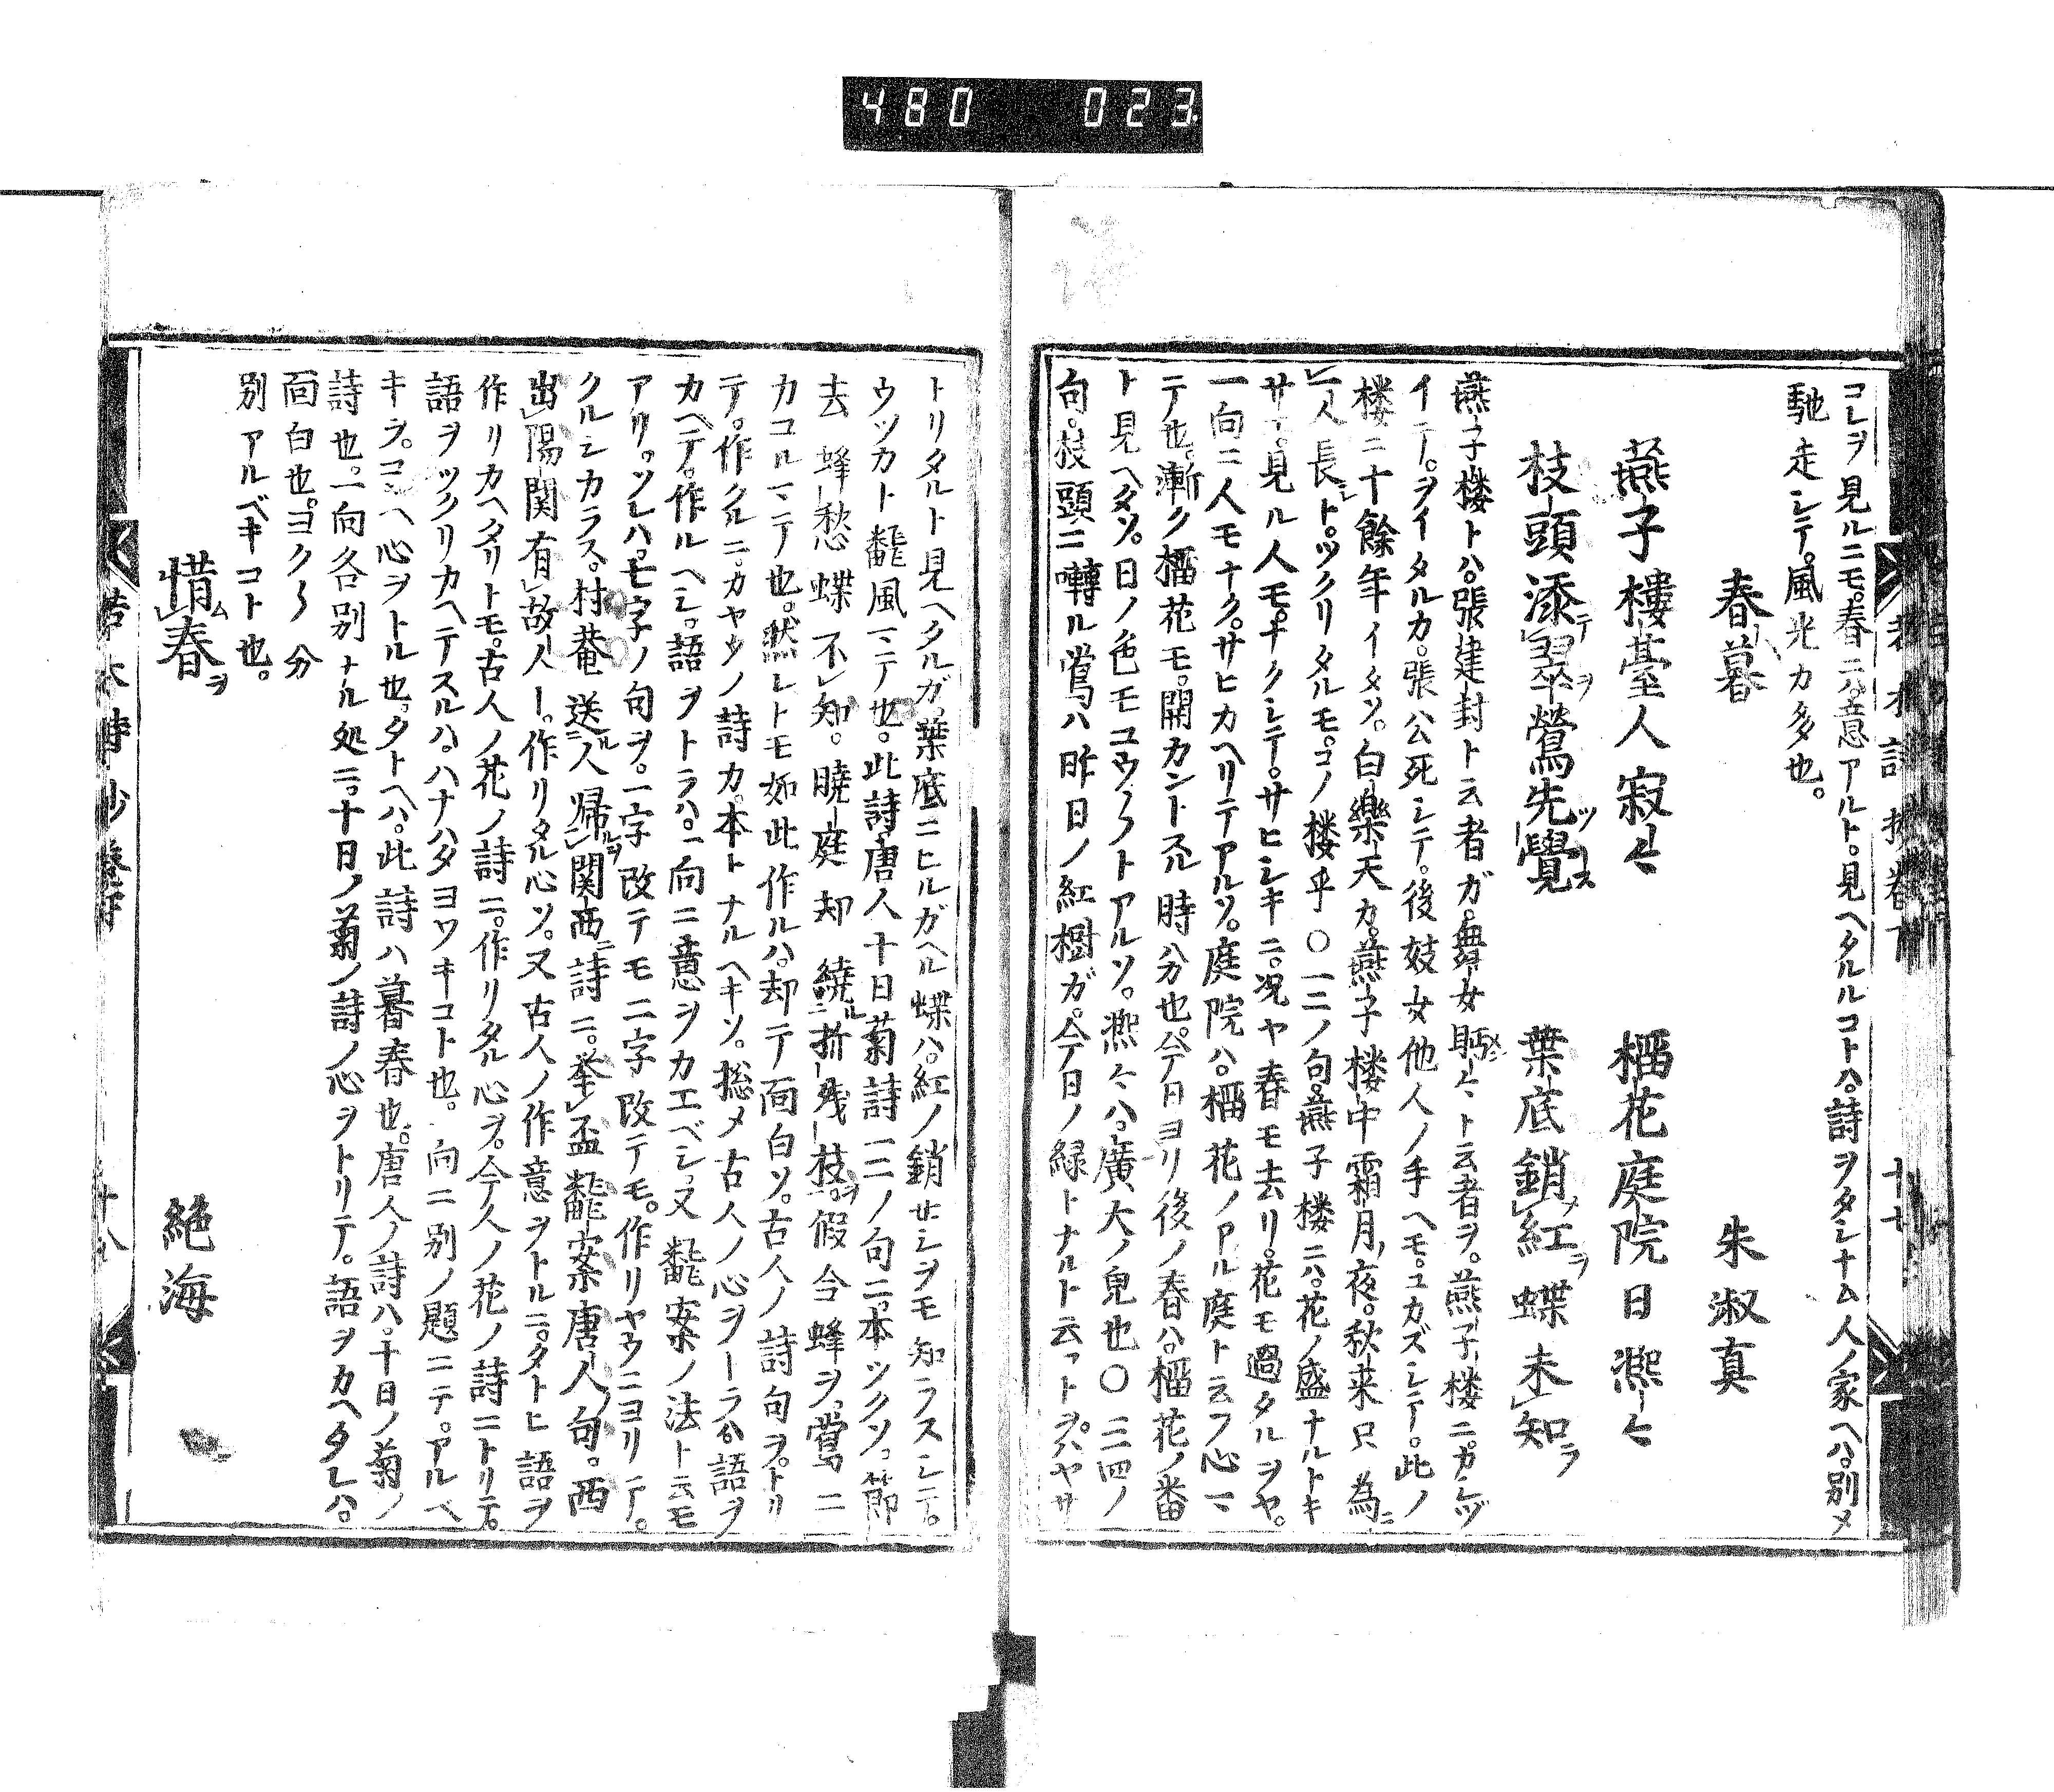 480 023
コレヲ見ルニモ。春ニハ。意アルト。見ヘタルルコトハ。詩ヲタシナム人ノ家ヘハ。別メ
馳走シテ。風光カ多也。
春暮 朱淑真
燕子樓臺人寂〻 榴花庭院日凞〻
枝頭添翠鶯先覺 葉底銷紅蝶未知
燕子樓トハ。張建封ト云者ガ。舞女眄〻ト云者ヲ。燕子楼ニ。カシヅ
イテ。ヲイタルカ。張公死シテ。後妓女他人ノ手ヘモ。ユカズシテ。此ノ
楼ニ十餘年イタソ。白樂天カ。燕子楼中霜月夜。秋来只為
一人長ト。ツクリタルモ。コノ楼乎〇一二ノ句燕子楼ニハ。花ノ盛ナルトキ
サヘ。見ル人モ。ナクシテ。サヒシキニ。況ヤ春モ去リ。花モ過タルヲヤ。
一向ニ人モナク。サヒカヘリテアルソ。庭院ハ。榴花ノアル庭ト云フ心
テ也。漸ク榴花モ。開カントスル時分也。今日ヨリ後ノ春ハ。榴花ノ番
ト見ヘタソ。日ノ色モコウ〳〵トアルソ。凞〻ハ。廣大ノ皃也〇三四ノ
句。枝頭ニ囀ル鶯ハ昨日ノ紅樹ガ。今日ノ緑トナルト云コトヲ。ハヤサ
トリタルト見ヘタルガ。葉底ニヒルガヘル蝶ハ。紅ノ銷セシヲモ知ラスシテ。
ウツカト飜風テ也。此詩唐人十日菊詩一二ノ句ニ。本ツクソ。節
去蜂愁蝶不知。曉庭却繞折残枝。假令蜂ヲ。鶯ニ
カユルテ也。然レトモ如此作ルハ。却テ面白ソ。古人ノ詩句ヲ。トリ
テ。作クルニ。カヤウノ詩カ。本トナルヘキソ。総メ古人ノ心ヲトラハ語ヲ
カヘテ。作ルヘシ。語ヲトラハ。一向ニ意ヲカエベシ。又飜案ノ法ト云モ
アリ。ソレハ。モ字ノ句ヲ。一字改テモ二字改テモ。作リヤウニヨリテ。
クルシカラス。村菴送人帰関西詩ニ。挙盃飜案唐人句。西
出陽関有故人ー。作リタル心ソ。又古人ノ作意ヲトルニ。タトヒ語ヲ
作リカヘタリトモ。古人ノ花ノ詩ニ。作リタル心ヲ。今人ノ花ノ詩ニトリテ。
語ヲツクリカヘテスルハ。ハナハタヨワキコト也。一向ニ別ノ題ニテ。アルベ
キヲ。コヽヘ心ヲトル也。タトヘハ。此詩ハ暮春也。唐人ノ詩ハ。十日ノ菊ノ
詩也。一向各別ナル処ニ。十日ノ菊ノ詩ノ心ヲトリテ。語ヲカヘタレハ。
面白也。ヨク〳〵分
別アルベキコト也。
惜春 絶海